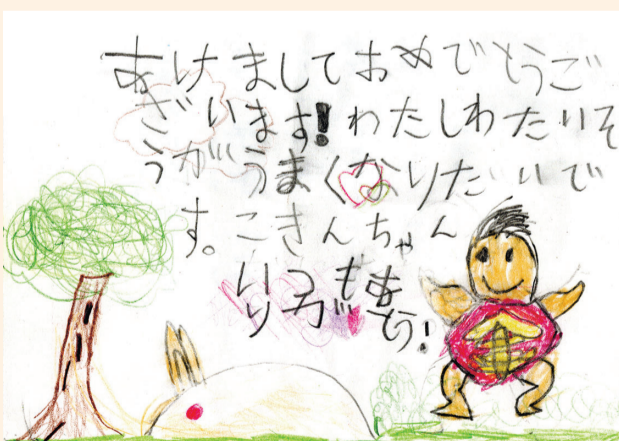 あけましておめでとうご
ざいます!わたしわたいそ
うがうまくなりたいで
す。こきんちゃん
いつもあ
りがとう!
金